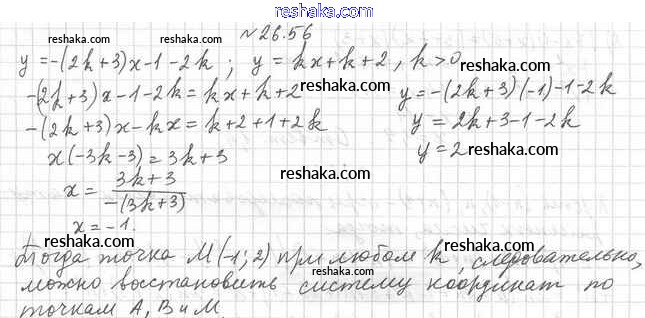 reshaka.com
№26.56
reshaka.com reshaka.com reshaka.com
y=-(2k+3)x-1-2k ; y=kx+k+2, k>0
reshaka.com
-(2k+3)x-1-2k=kx+k+2 y=-(2k+3)(-1)-1-2k
reshaka.com
-(2k+3)x-kx=k+2+1+2k y=2k+3-1-2k
x(-3k-3)=3k+3 y=2 reshaka.com
x= 3k+3 / -(3k+3) reshaka.com
x=-1.
reshaka.com reshaka.com
Тогда точка M(-1;2) при любом k, следовательно,
можно восстановить систему координат по
reshaka.com reshaka.com
точкам A, B и M